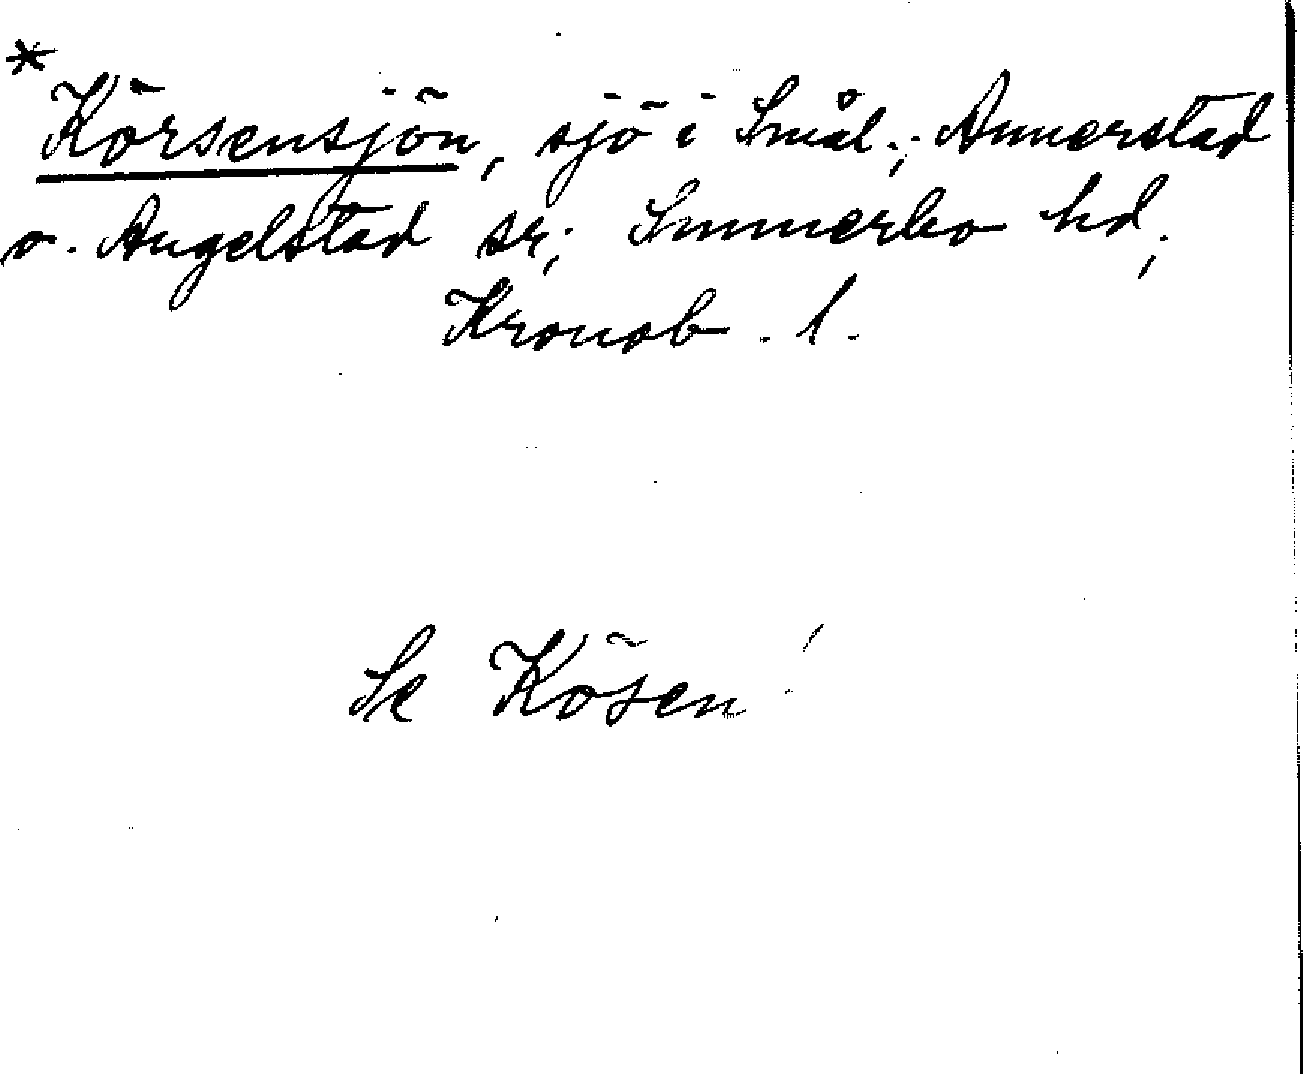 * Körsensjön, sjö i Smål.; Annerstad
o. Angelstad sr; Sunnerbo hd;
Kronob. l.
Se Kösen!